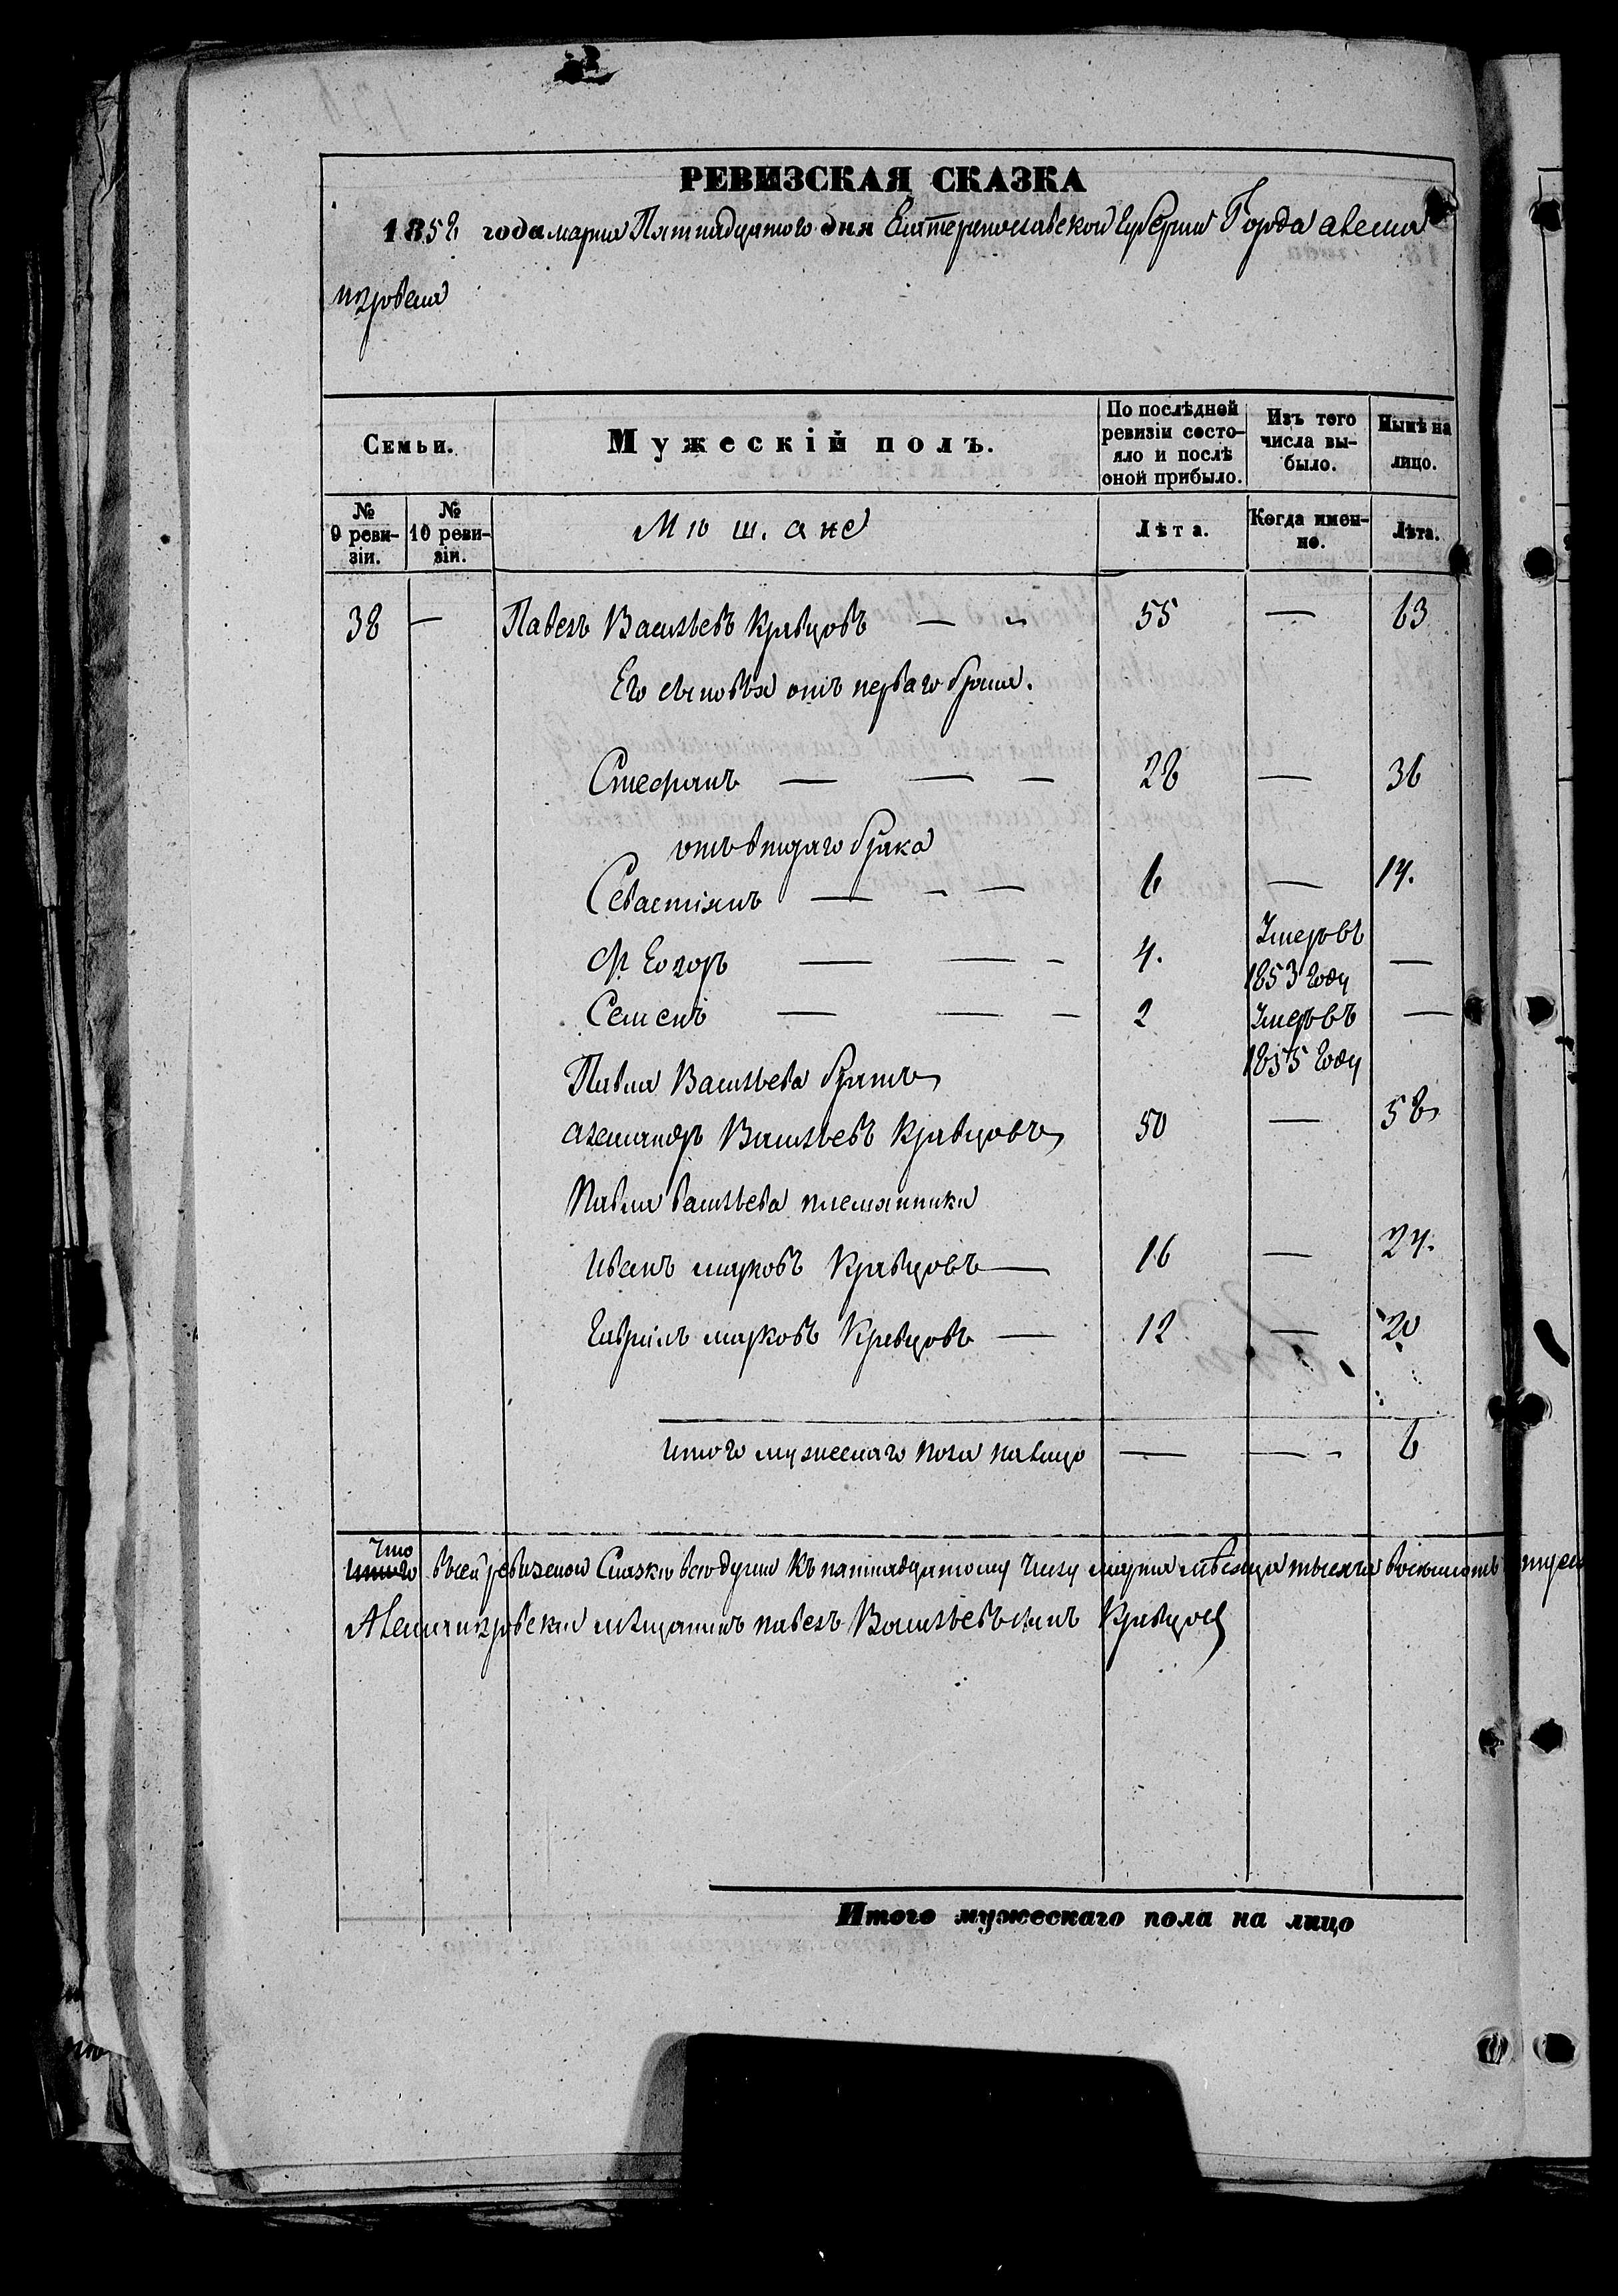 РЕВИЗСКАЯ СКАЗКА
1858 года марта Пятнадцатого дня Екатеринославской Губернии Города алекса
ндровска
Семьи.
Мужескій полъ.
По послѣдней ревизіи состояло и послѣ оной прибыло.
Изъ того числа выбыло.
Нынѣ на лицо.
№ 9 ревизіи.
№ 10 ревизіи.
Лѣта.
Когда именно.
Лѣта.
38 — Павелъ Васильевъ Кравцовъ — - 55 — 63
Его сыновья отъ перваго брака.
Стефанъ — — — 28 — 36
отъ втораго брака
Севастіянъ — - — 6 — 14.
Егоръ — — - 4. Умеръ въ 1853 году —
Семенъ — — — 2 Умеръ въ 1855 году —
Павла Васильева братъ
александръ Васильевъ Кравцовъ 50 — 58
Павла васильева племянники
Иванъ марковъ Кравцовъ — 16 — 24.
Гаврилъ марковъ Кравцовъ — 12 — 20
итого мужескаго пола налицо — — - 6
Что
въ сей ревизской Сказке все души къ пятнадцатому числу марта месяца тысяча восемьсотъ
Александровски мещанинъ павелъ Васильевъ сынъ Кравцовъ
Итого мужескаго пола на лицо